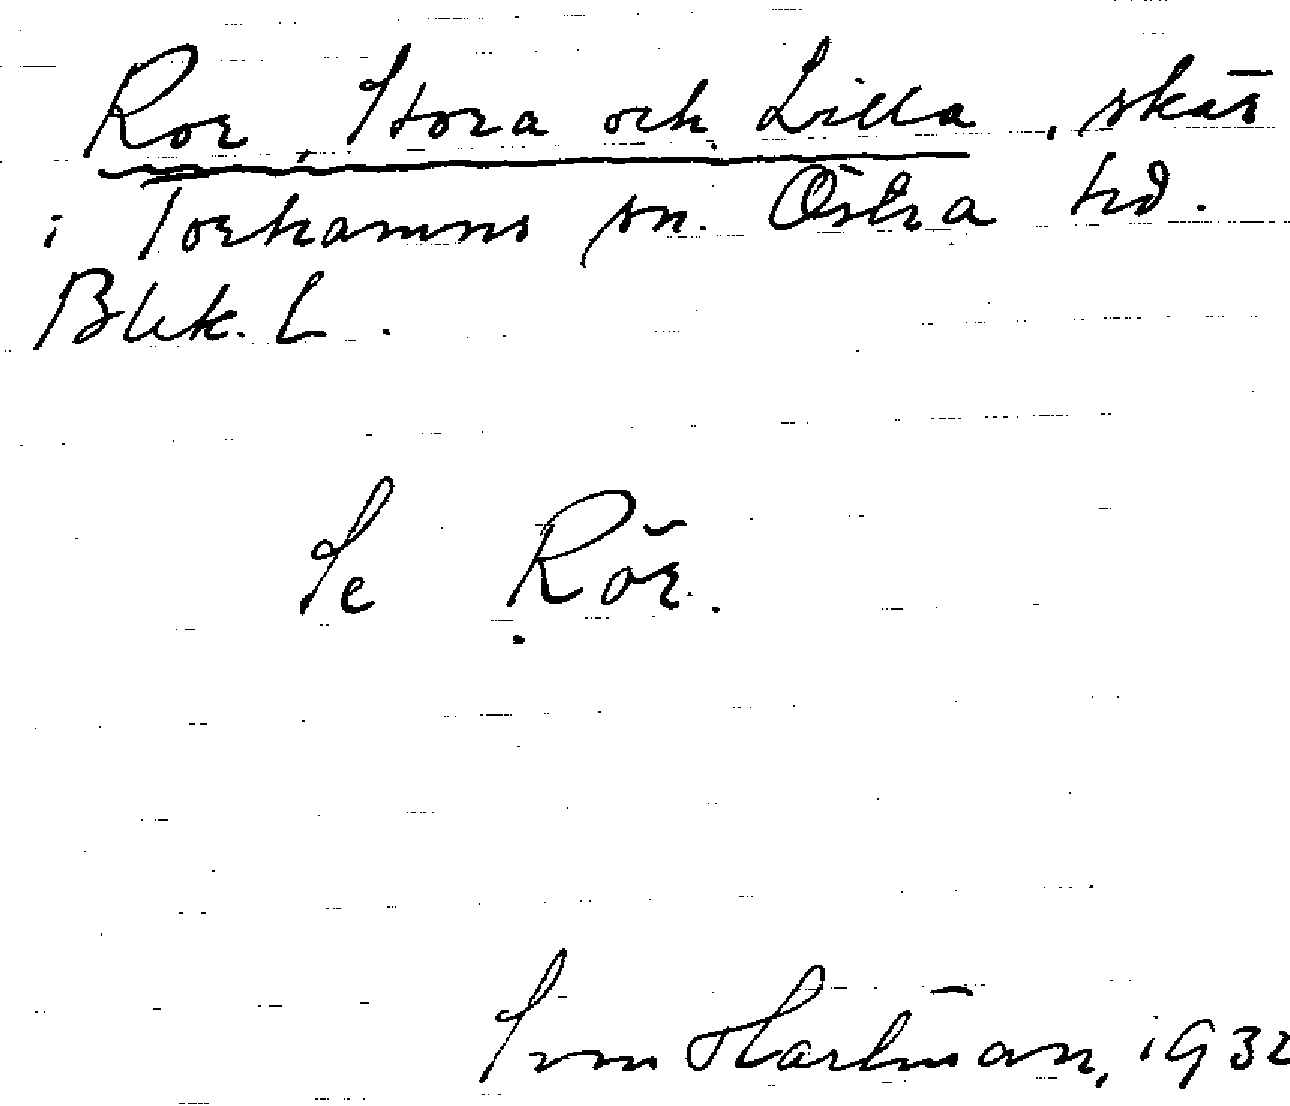 Ror, Stora och Lilla, skär
i Torhamns sn. Östra hd.
Blek. L.
Se Rör.
Sven Hartman, 1932